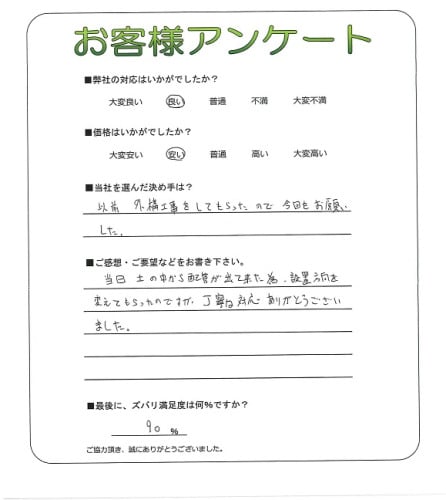 お客様アンケート
■弊社の対応はいかがでしたか?
大変良い 良い 普通 不満 大変不満
■価格はいかがでしたか?
大変安い 安い 普通 高い 大変高い
■当社を選んだ決め手は?
以前 外構工事をしてもらったので 今回もお願い
した。
■ご感想・ご要望などをお書き下さい。
当日 土の中から配管が出て来た為、設置方向を
変えてもらったのですが、丁寧な対応 ありがとうござい
ました。
■最後に、ズバリ満足度は何%ですか?
90 %
ご協力頂き、誠にありがとうございました。